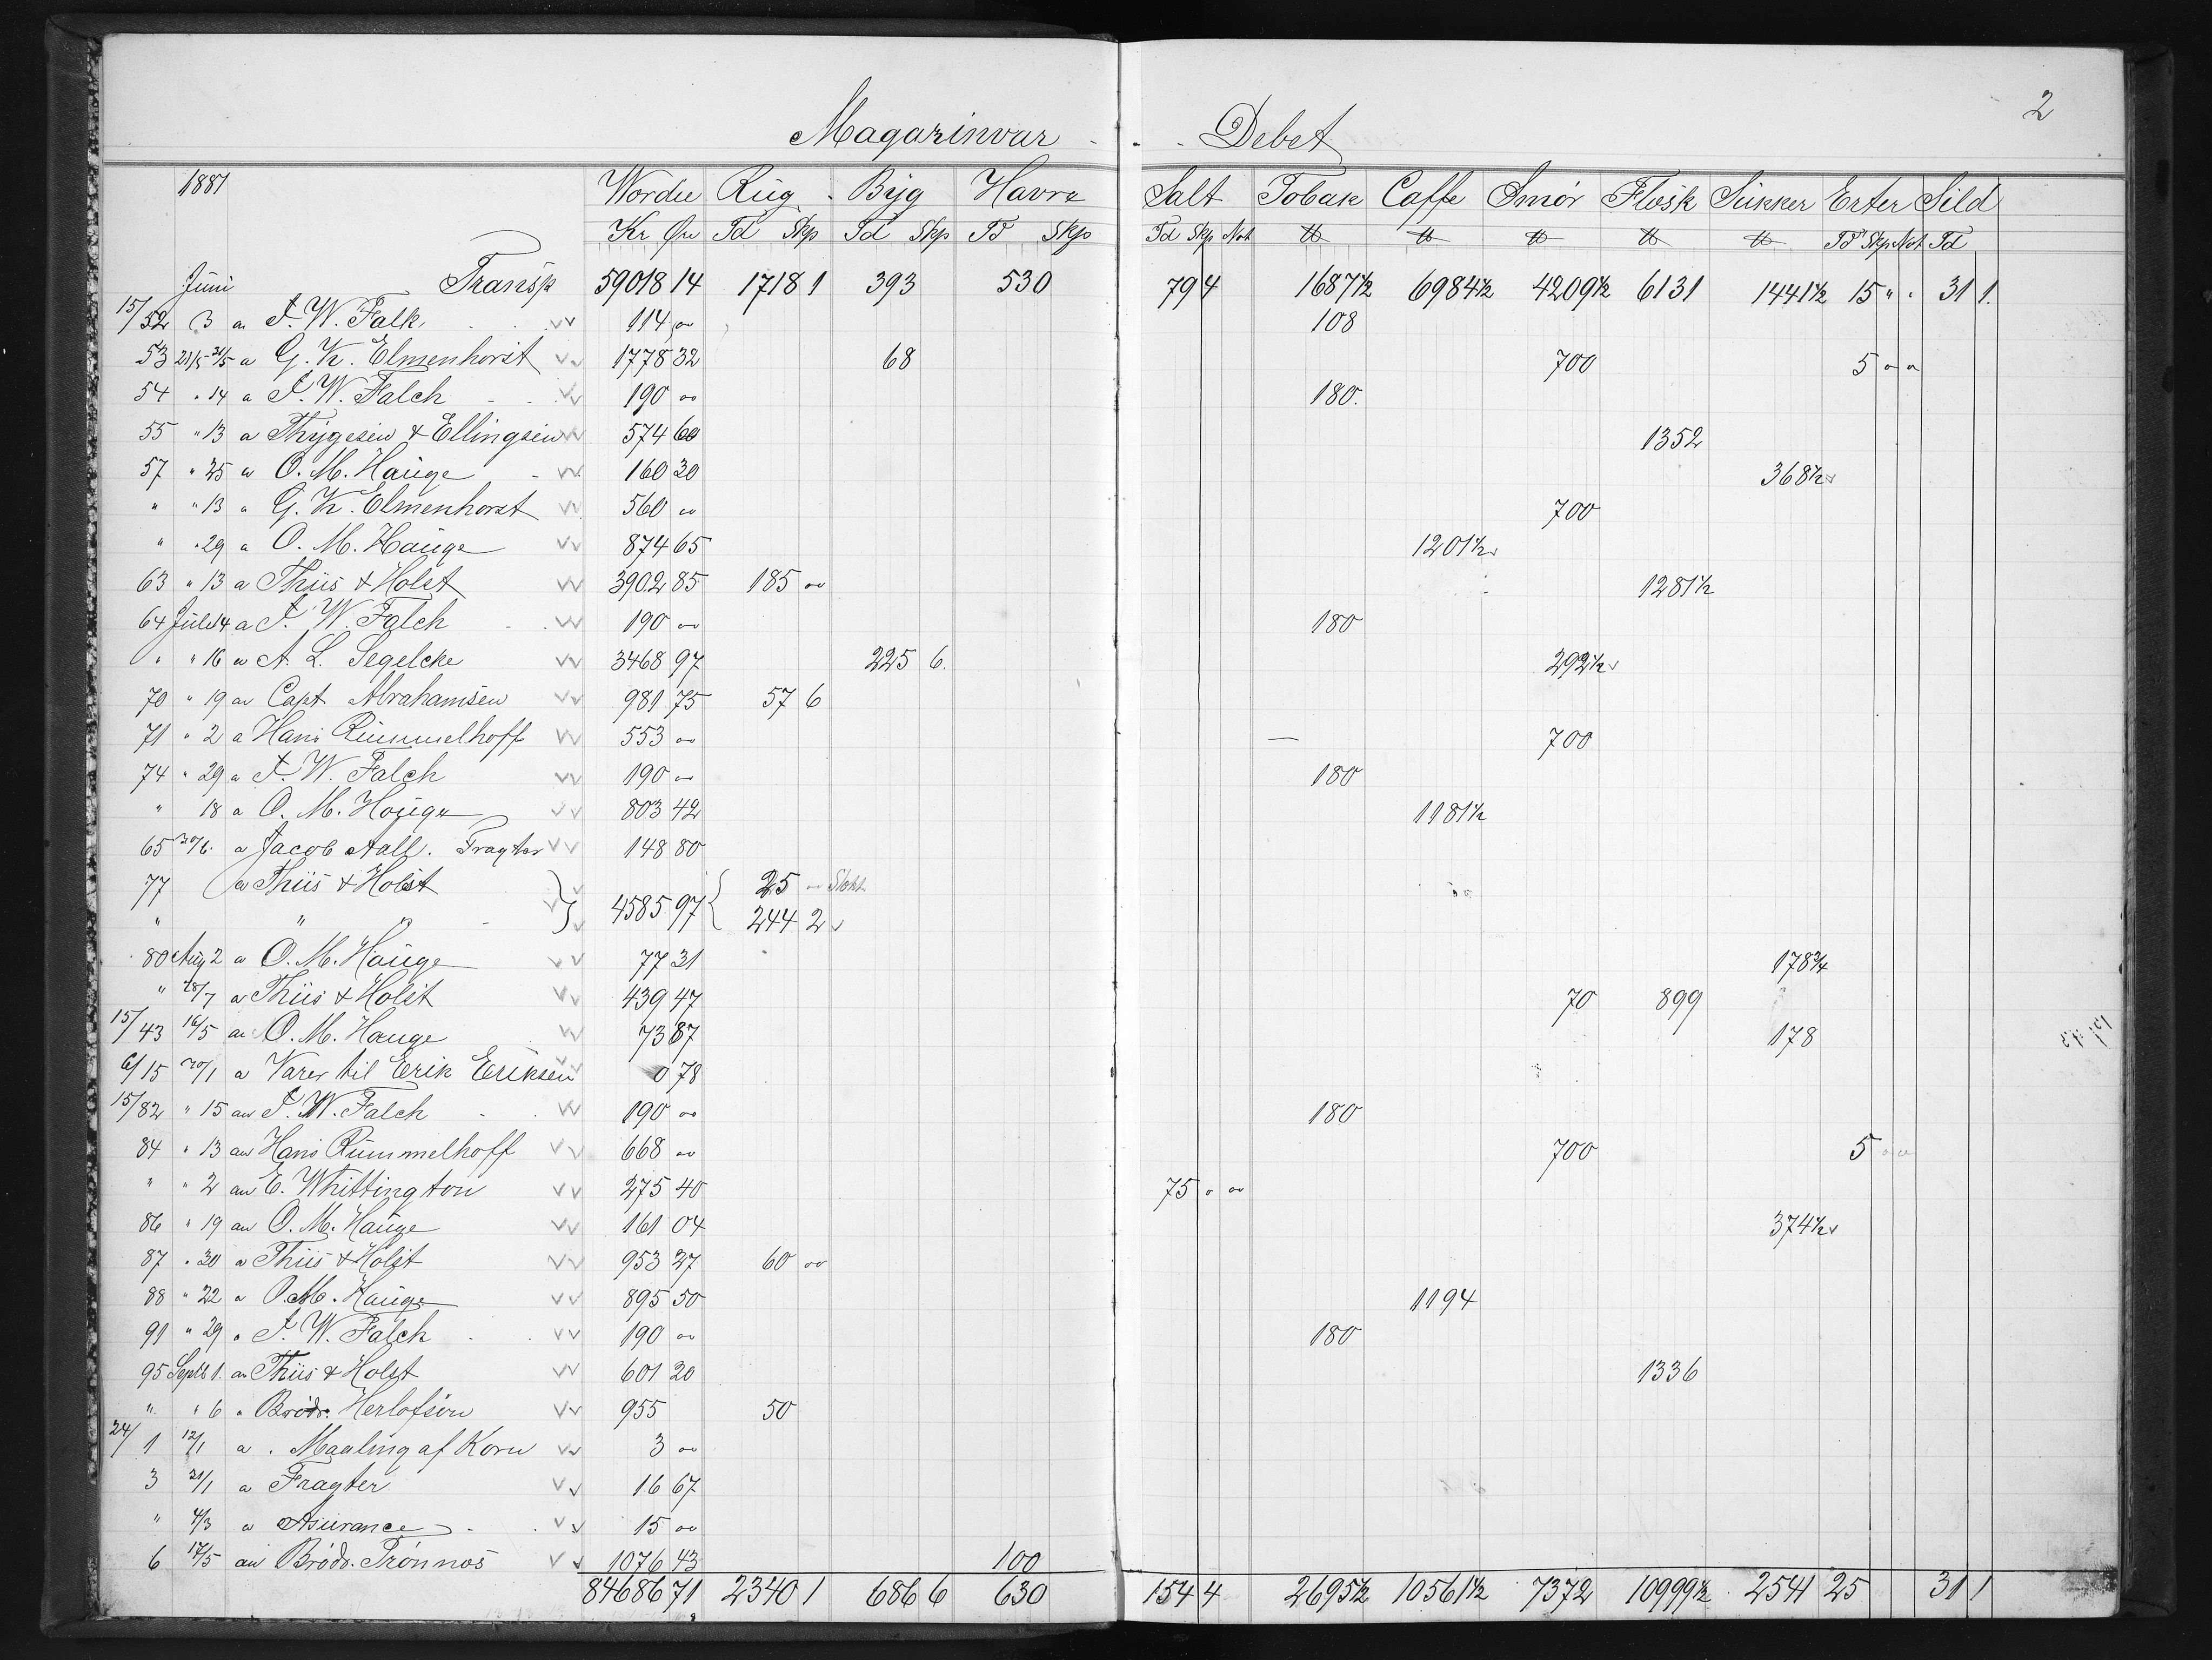 2
Magazinvar - - - Debet
1881 Værdie Rug Byg Havre Salt Tobak Caffe Smør Flesk Sukker Erter Sild
Kr Øre Td Skp Td Skp Td Skp Td Skp Not ℔ ℔ ℔ ℔ ℔ Td Skp Not Td
Juni Transp 59018 14 1718 1 393 530 79 4 1687½ 6984½ 4209½ 6131 1441½ 15 " " 31 1
15/52 3 a J. W. Falk 114 00 108
53 21/5 31/5 a G. K. Elmenhorst 1778 32 68 700 5 0 0
54 " 14 a J. W. Falch 190 00 180
55 " 13 a Thygesen & Ellingsen 574 60 1352
57 " 25 a O. M. Hauge 160 30 368½
" " 13 a G. K. Elmenhorst 560 00 700
" " 29 a O. M. Hauge 874 65 1201½
63 " 13 a Thiis & Holst 3902 85 185 00 1281½
64 Juli 4 a J. W. Falch 190 00 180
" " 16 a A. L. Segelcke 3468 97 225 6 292½
70 " 19 a Capt Abrahamsen 981 75 57 6
71 " 2 a Hans Rummelhoff 553 00 — 700
74 " 29 a J. W. Falch 190 00 180
" 18 a O. M. Hauge 803 42 1181½
65 30/6 a Jacob Aall. Fragter 148 80
77 a Thiis & Holst } 4585 97 { 25 00
" " 244 2
80 Aug 2 a O. M. Hauge 77 31 178¾
" 28/7 a Thiis & Holst 439 47 70 899
15/43 16/5 a O. M. Hauge 73 87 178
6/15 20/1 a Varer til Erik Eriksen 0 78
15/82 " 15 a J. W. Falch 190 00 180
84 " 13 a Hans Rummelhoff 668 00 700 5 0 0
" " 2 a E. Whittington 275 40 75 0 00
86 " 19 a O. M. Hauge 161 04 374½
87 " 30 a Thiis & Holst 953 27 60 00
88 " 22 a O. M. Hauge 895 50 1194
91 " 29 a J. W. Falch 190 00 180
95 Septb 1. a Thiis & Holst 601 20 1336
" " 6 a Brødr. Herlofson 955 50
24/1 12/1 a Maaling af Korn 3 00
3 31/1 a Fragter 16 67
" 4/3 a Asurance 15 00
6 17/5 a Brødr. Trønnes 1076 43 100
84686 71 2340 1 686 6 630 154 4 2695½ 10561½ 7372 10999½ 2541 25 31 1